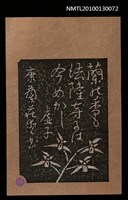 NMTL20100130072
蘭の香も
法隆寺には
今めかし
虚子